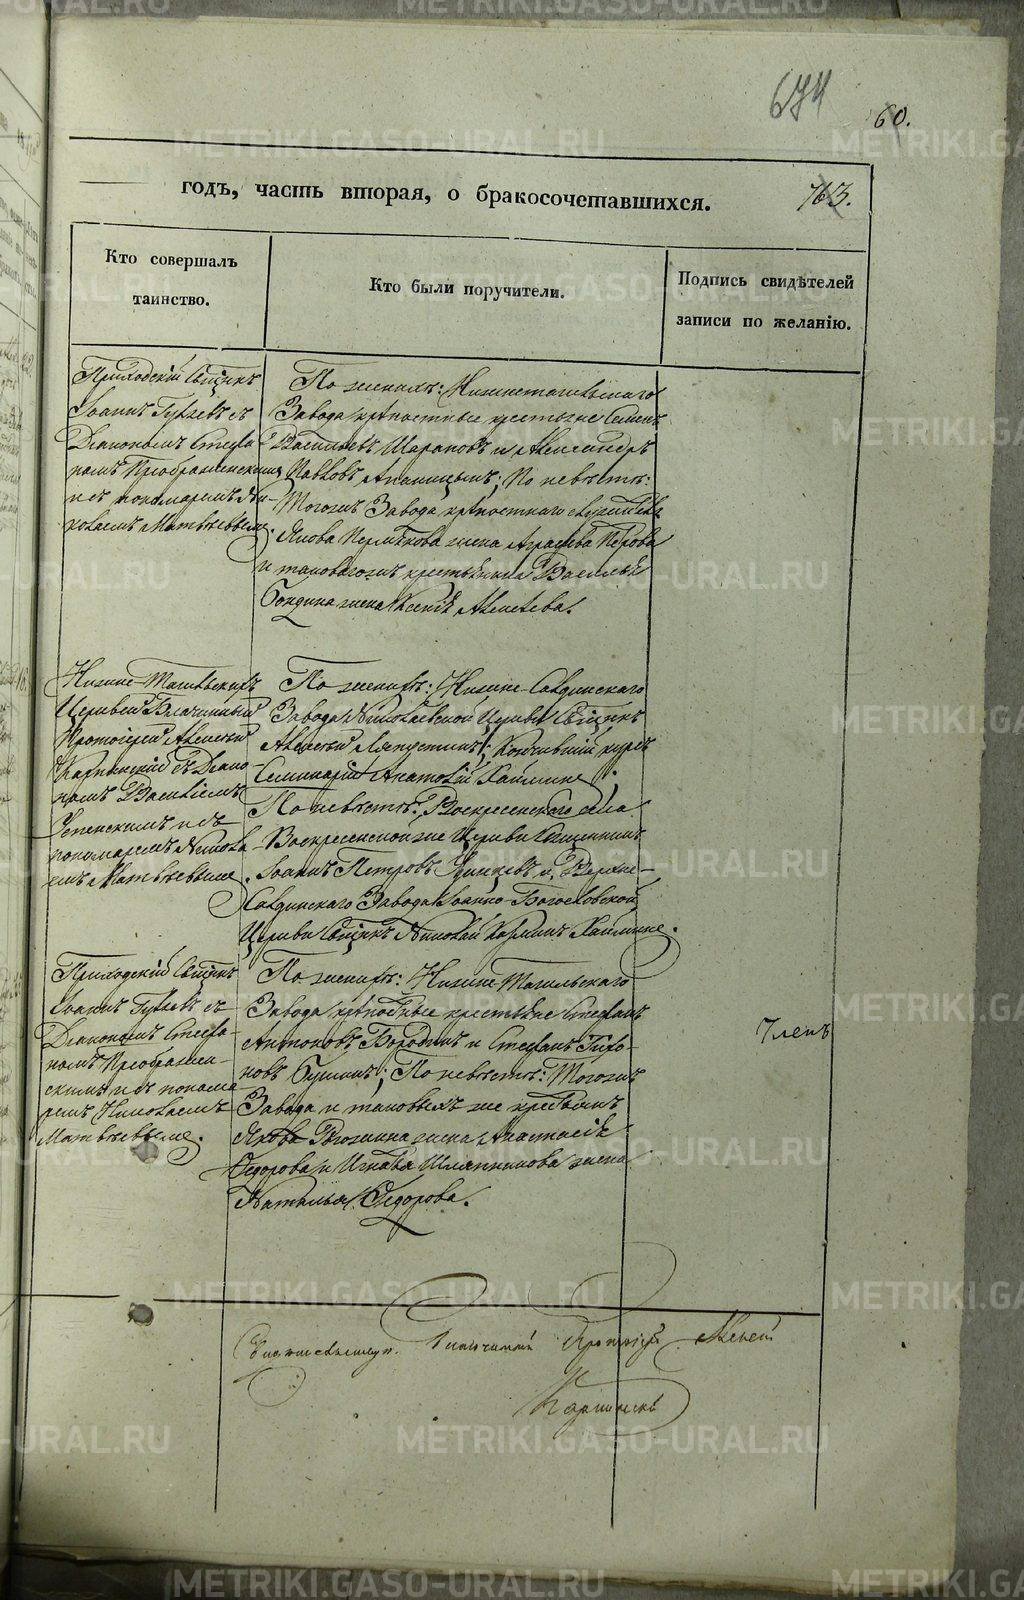 674
60.
годъ, часть вторая, о бракосочетавшихся.
763.
Кто совершалъ
таинство.
Кто были поручители.
Подпись свидѣтелей
записи по желанію.
Приходскій Свщнкъ
Іоаннъ Гуляевъ съ
Діакономъ Стефа-
номъ Преображенскимъ
и съ пономаремъ Ни-
колаемъ Матвѣевымъ.
По женихѣ: Нижнетагильскаго
Завода крѣпостные крестьяне Семенъ
Васильевъ Шараповъ и Александръ
Павловъ; По невѣстѣ:
Тогожъ Завода крѣпостнаго
жена Аграфена Петрова
и таковагожъ крестьянина Василья
жена Ксенія Алексѣева.
Нижне-Тагильскихъ
Церквей Благочинный
Протоіерей Алексѣй
Карпинскій съ Діако-
номъ Василіемъ
Успенскимъ и съ
пономаремъ Никола-
емъ Матвѣевымъ.
По женихѣ: Нижне-Салдинскаго
Завода Николаевской Церкви Свщнкъ
Алексѣй Ляпустинъ; Кончившій курсъ
Семинаріи Анатолій
По невѣстѣ: Воскресенскаго села
Воскресенской же Церкви Священникъ
Іоаннъ Петровъ и Верхне-
Салдинскаго Завода Іоанно-Богословской
Церкви Свщнкъ Николай
Приходскій Свщнкъ
Іоаннъ Гуляевъ съ
Діакономъ Стефа-
номъ Преображен-
скимъ и съ понома-
ремъ Николаемъ
Матвѣевымъ.
По женихѣ: Нижне-Тагильскаго
Завода крѣпостные крестьяне Стефанъ
Антоновъ Бородинъ и Стефанъ Тихо-
новъ; По невѣстѣ: Тогожъ
Завода и таковыхъ же крестьянъ
Якова жена Анастасія
Ѳедорова и Игнатія Шляпникова жена
Наталья Ѳедорова.
Членъ
Свидѣтельствовалъ Благочинный Протоіерей Алексѣй
Карпинскій
METRIKI.GASO-URAL.RU